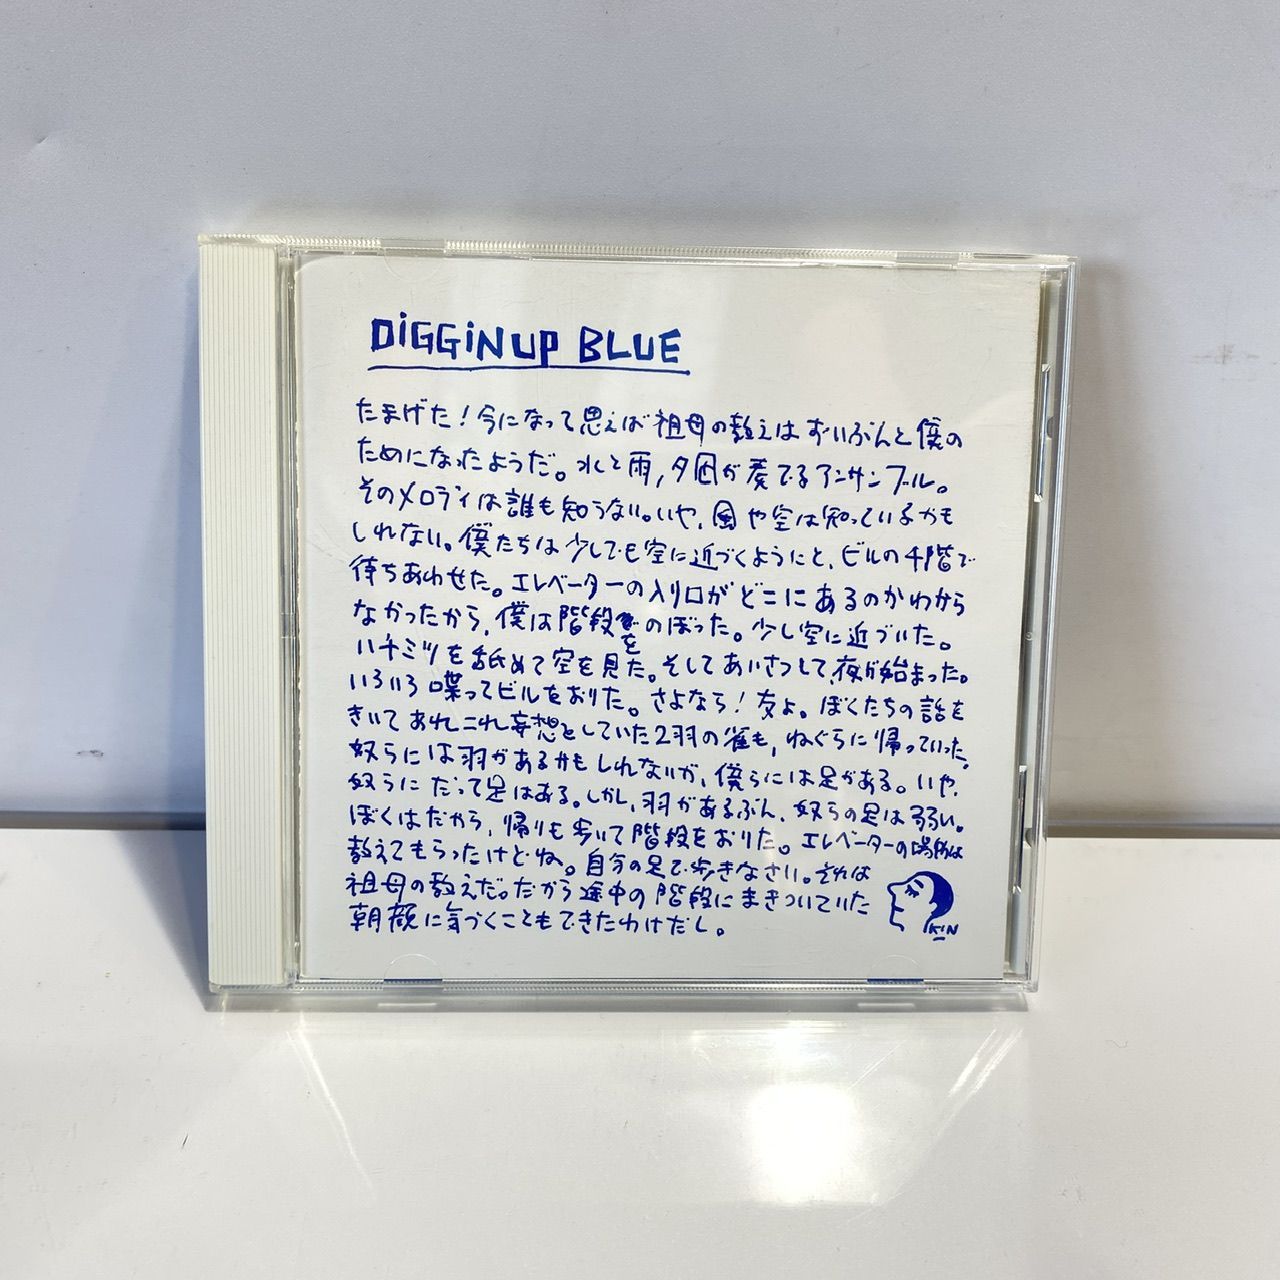 DiGGiN UP BLUE
たまげた！今になって思えば祖母の教えはずいぶんと僕の
ためになったようだ。水と雨，夕凪が奏でるアンサンブル。
そのメロディは誰も知らない。いや，風や空は知っているかも
しれない。僕たちは少しでも空に近づくようにと，ビルの千階で
待ちあわせた。エレベーターの入り口がどこにあるのかわから
なかったから，僕は階段をのぼった。少し空に近づいた。
ハチミツを舐めて空を見た。そしてあいさつして，夜が始まった。
いろいろ喋ってビルをおりた。さよなら！友よ。ぼくたちの話を
きいてあれこれ妄想をしていた2羽の雀も，ねぐらに帰っていった。
奴らには羽があるかもしれないが，僕らには足がある。いや，
奴らにだって足はある。しかし，羽があるぶん，奴らの足は弱い。
ぼくはだから，帰りも歩いて階段をおりた。エレベーターの場所は
教えてもらったけどね。自分の足で歩きなさい。それは
祖母の教えだ。だから途中の階段にまきついていた
朝顔に気づくこともできたわけだし。
KIN